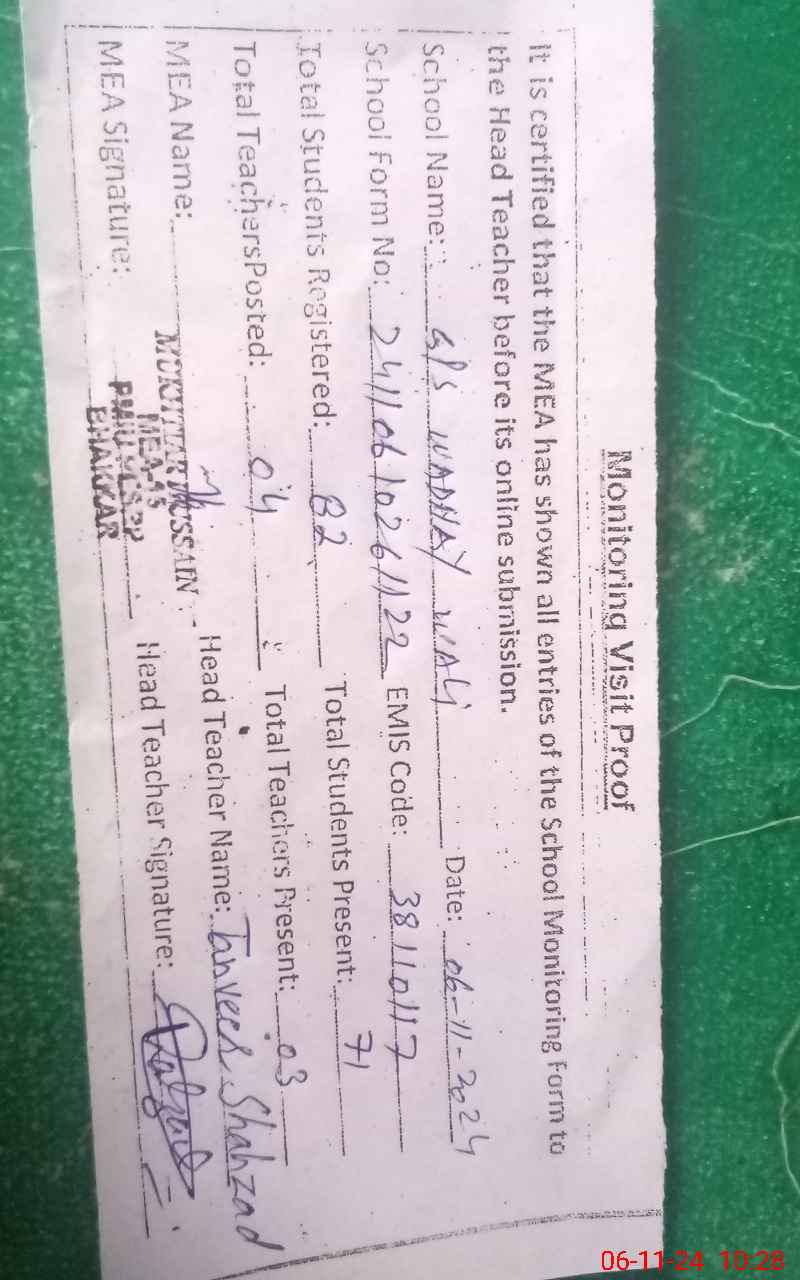 Monitoring Visit Proof
It is certified that the MEA has shown all entries of the School Monitoring Form to
the Head Teacher before its online submission.
School Name: GPS WADHAY WALI Date: 06-11-2024
School Form No: 24110610261122 EMIS Code: 38110117
Total Students Registered: 82 Total Students Present: 71
Total Teachers Posted: 04 Total Teachers Present: 03
MEA Name: MUKHTIAR HUSSAIN Head Teacher Name: Tanveer Shahzad
MEA-15
MEA Signature: Head Teacher Signature:
BHAKKAR
06-11-24 10:28